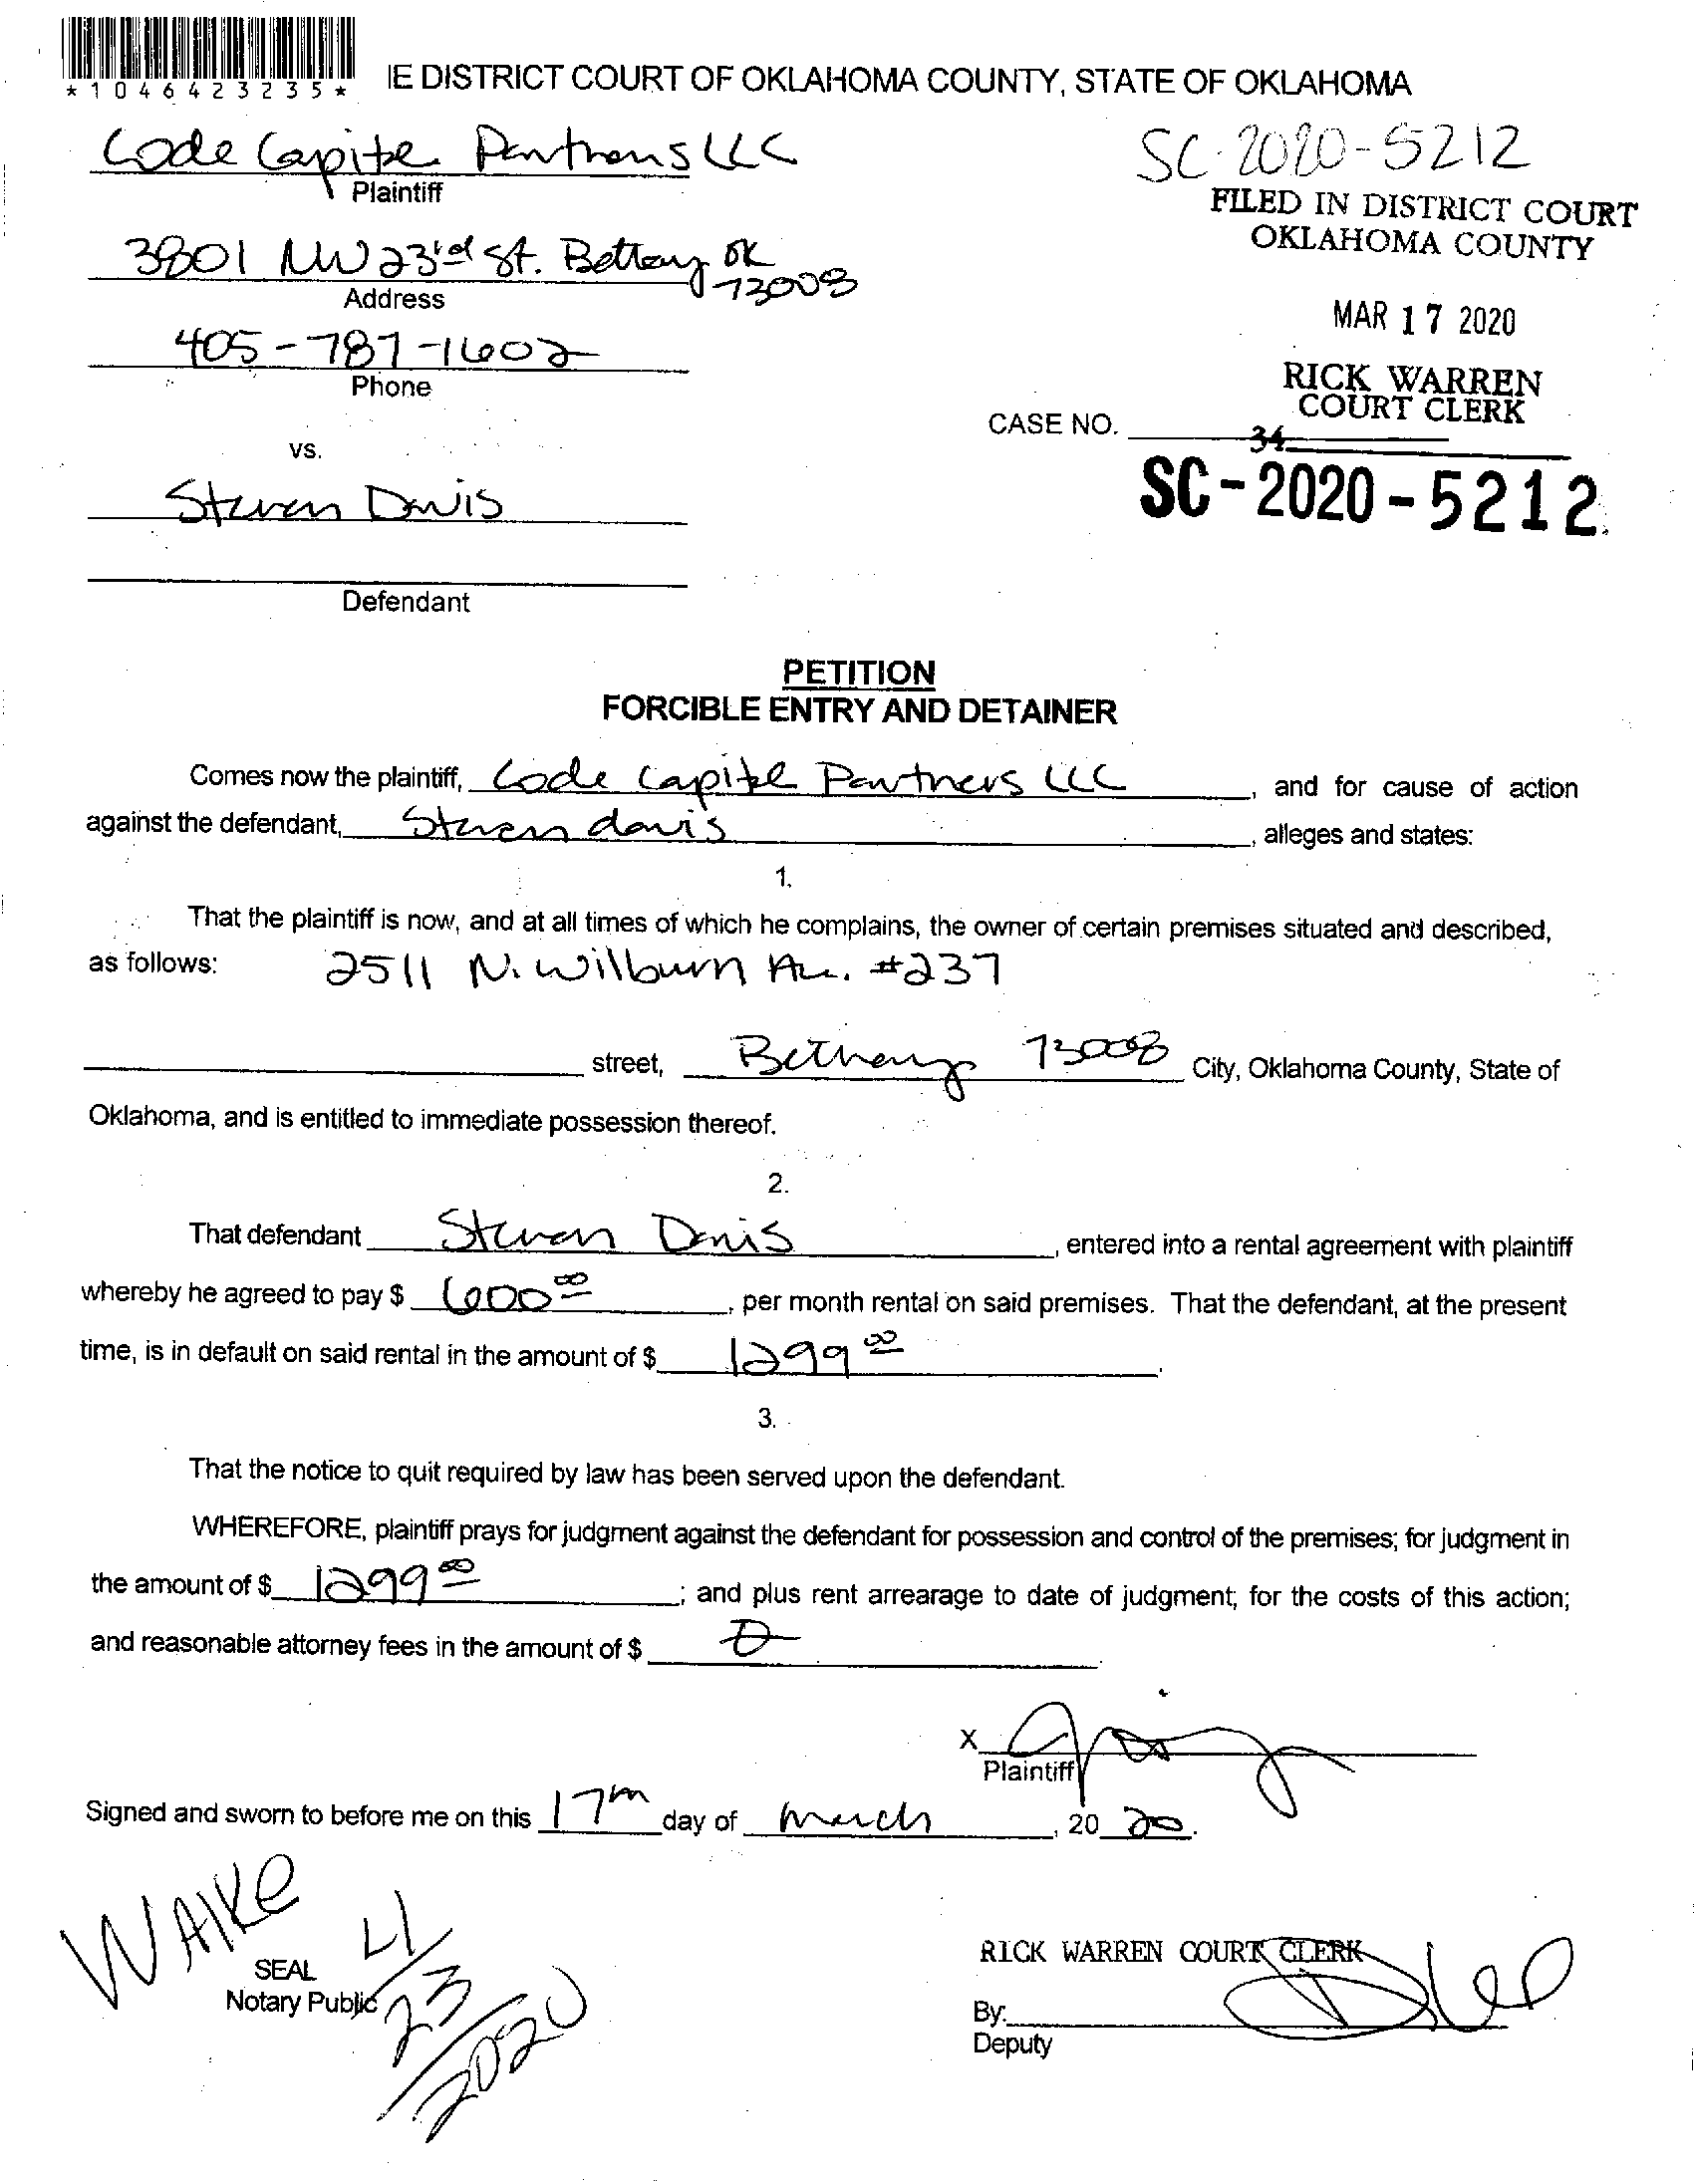 *1046423235*
IE DISTRICT COURT OF OKLAHOMA COUNTY, STATE OF OKLAHOMA
Code Capital Partners LLC
Plaintiff
SC-2020-5212
FILED IN DISTRICT COURT
OKLAHOMA COUNTY
3801 NW 23rd St. Bethany OK
73008
Address
MAR 17 2020
405-787-1602
Phone
RICK WARREN
COURT CLERK
CASE NO.
34
vs.
SC-2020-5212
Steven Davis
Defendant
PETITION
FORCIBLE ENTRY AND DETAINER
Comes now the plaintiff, Code Capital Partners LLC, and for cause of action
against the defendant, Steven davis, alleges and states:
1.
That the plaintiff is now, and at all times of which he complains, the owner of certain premises situated and described,
as follows: 2511 N. Wilburn Av. #237
street, Bethany 73008 City, Oklahoma County, State of
Oklahoma, and is entitled to immediate possession thereof.
2.
That defendant Steven Davis, entered into a rental agreement with plaintiff
whereby he agreed to pay $ 600 00, per month rental on said premises. That the defendant, at the present
time, is in default on said rental in the amount of $ 1299 00.
3.
That the notice to quit required by law has been served upon the defendant.
WHEREFORE, plaintiff prays for judgment against the defendant for possession and control of the premises; for judgment in
the amount of $ 1299 00; and plus rent arrearage to date of judgment; for the costs of this action;
and reasonable attorney fees in the amount of $ 0.
X
Plaintiff
Signed and sworn to before me on this 17th day of March, 20 20.
SEAL
Notary Public
4/23/2020
RICK WARREN COURT CLERK
By:
Deputy